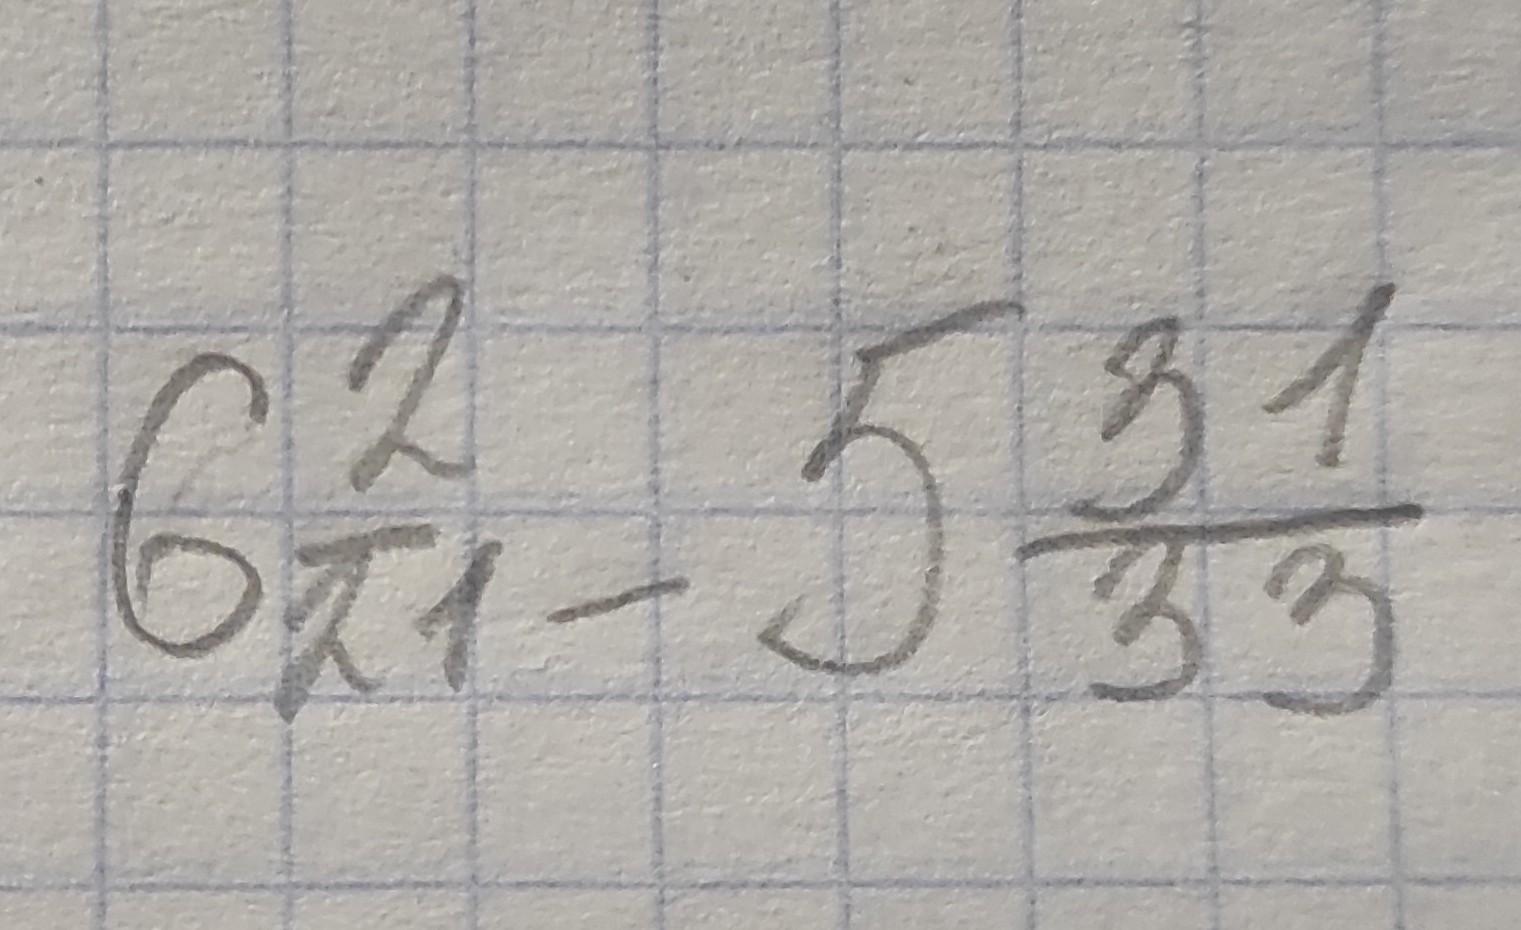 6 2/21 - 5 31/33